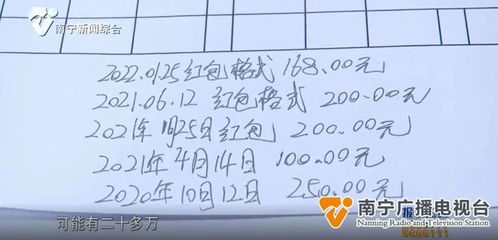 南宁新闻综合
2022.01.25 红包格式 168.00元
2021.06.12 红包格式 200.00元
2021年1月25日红包 200.00元
2021年4月14日 100.00元
2020年10月12日 250.00元
可能有二十多万
南宁广播电视台
Nanning Radio and Television Station